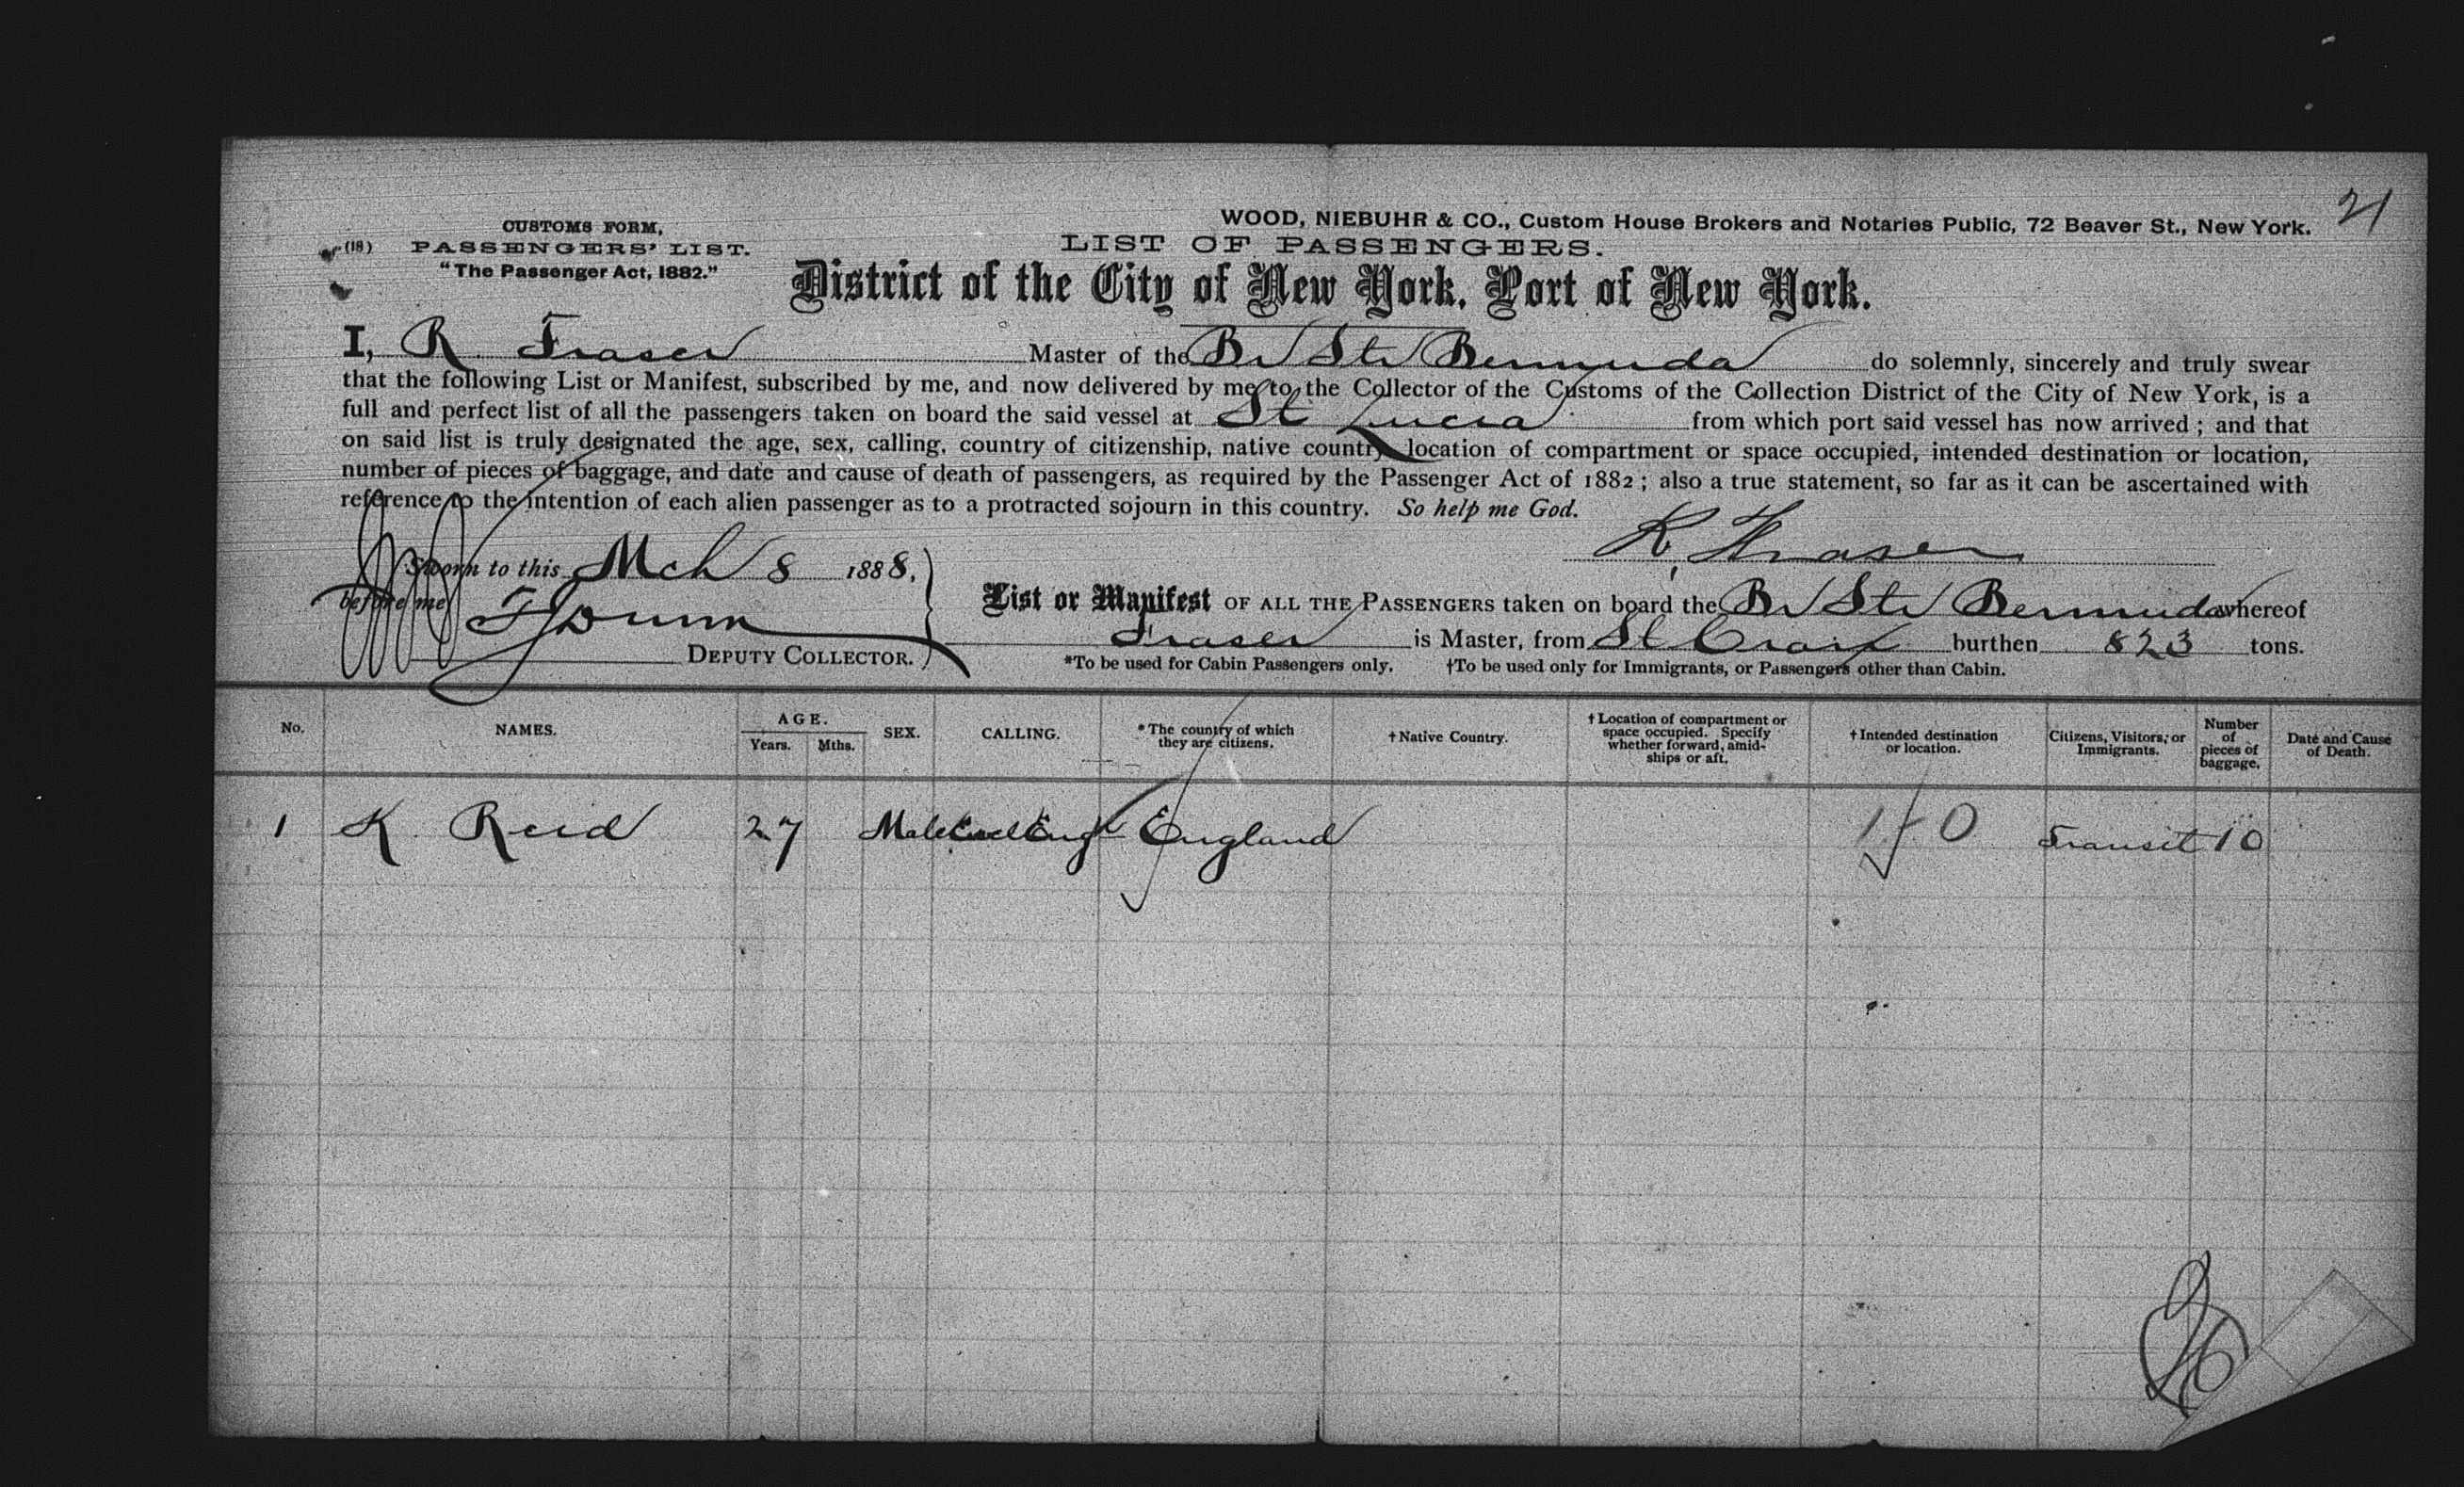 21
WOOD, NIEBUHR & CO., Custom House Brokers and Notaries Public, 72 Beaver St., New York.
CUSTOMS FORM,
(18) PASSENGERS' LIST.
"The Passenger Act, 1882."
LIST OF PASSENGERS.
District of the City of New York, Port of New York.
I, R Fraser Master of the Br Str Bermuda do solemnly, sincerely and truly swear
that the following List or Manifest, subscribed by me, and now delivered by me to the Collector of the Customs of the Collection District of the City of New York, is a
full and perfect list of all the passengers taken on board the said vessel at St Lucia from which port said vessel has now arrived; and that
on said list is truly designated the age, sex, calling, country of citizenship, native country location of compartment or space occupied, intended destination or location,
number of pieces of baggage, and date and cause of death of passengers, as required by the Passenger Act of 1882; also a true statement, so far as it can be ascertained with
reference to the intention of each alien passenger as to a protracted sojourn in this country. So help me God.
R, Fraser
Sworn to this Mch 8 1888,
before me
F J Dunn
DEPUTY COLLECTOR.
List or Manifest OF ALL THE PASSENGERS taken on board the Br Str Bermuda whereof
Fraser is Master, from St Croix burthen 823 tons.
*To be used for Cabin Passengers only. †To be used only for Immigrants, or Passengers other than Cabin.
No. NAMES. AGE. Years. Mths. SEX. CALLING. *The country of which they are citizens. †Native Country. †Location of compartment or space occupied. Specify whether forward, amidships or aft. †Intended destination or location. Citizens, Visitors, or Immigrants. Number of pieces of baggage. Date and Cause of Death.
1 K. Reid 27 Male Civel Engr England 1 / 0 Transit 10